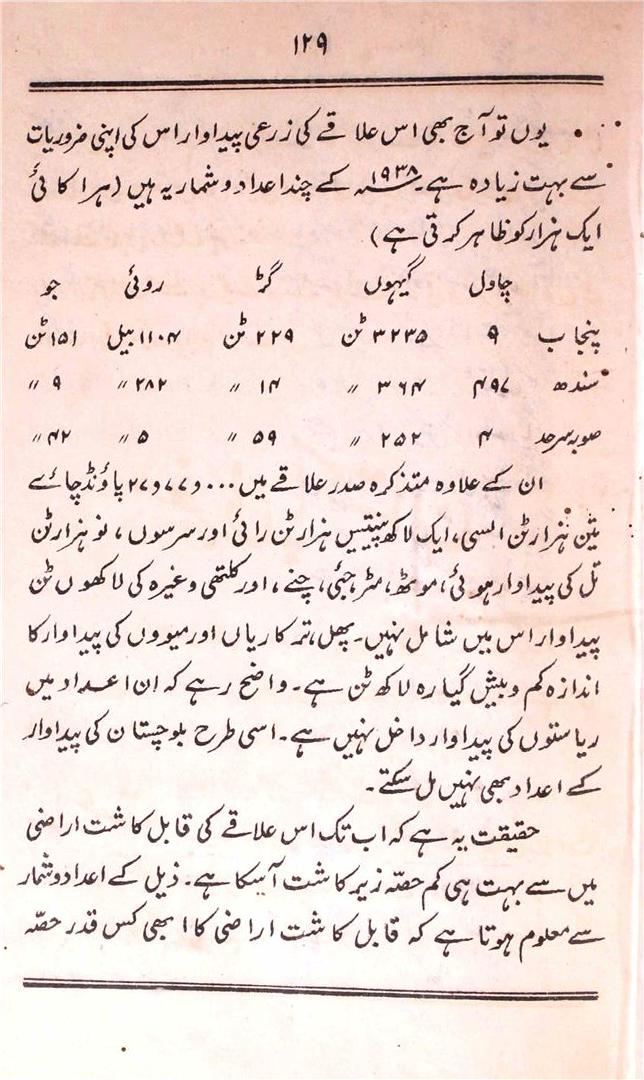 ۱۲۹
یوں تو آج بھی اس علاقے کی زرعی پیداوار اس کی اپنی ضروریات
سے بہت زیادہ ہے۔ ۱۹۳۸ء کے چند اعداد و شمار یہ ہیں (ہر اکائی
ایک ہزار کو ظاہر کرتی ہے)
چاول گیہوں گڑ روئی جو
پنجاب ۹ ۳۲۳۵ ٹن ۲۲۹ ٹن ۱۱۰۴ بیل ۱۵۱ ٹن
سندھ ۴۹۷ ۳۶۴ 〃 ۱۴ 〃 ۲۸۲ 〃 ۹ 〃
صوبہ سرحد ۴ ۲۵۲ 〃 ۵۹ 〃 ۵ 〃 ۴۲ 〃
ان کے علاوہ متذکرہ صدر علاقے میں ۲۷،۷۷،۰۰۰ پاؤنڈ چائے
تین ہزار ٹن السی، ایک لاکھ پینتیس ہزار ٹن رائی اور سرسوں، نو ہزار ٹن
تل کی پیداوار ہوئی، موٹھ، مٹر، جئی، چنے، اور کلتھی وغیرہ کی لاکھوں ٹن
پیداوار اس میں شامل نہیں۔ پھل، ترکاریاں اور میووں کی پیداوار کا
اندازہ کم و بیش گیارہ لاکھ ٹن ہے۔ واضح رہے کہ ان اعداد میں
ریاستوں کی پیداوار داخل نہیں ہے۔ اسی طرح بلوچستان کی پیداوار
کے اعداد بھی نہیں مل سکتے۔
حقیقت یہ ہے کہ اب تک اس علاقے کی قابل کاشت اراضی
میں سے بہت ہی کم حصّہ زیر کاشت آسکا ہے۔ ذیل کے اعداد و شمار
سے معلوم ہوتا ہے کہ قابل کاشت اراضی کا ابھی کس قدر حصّہ